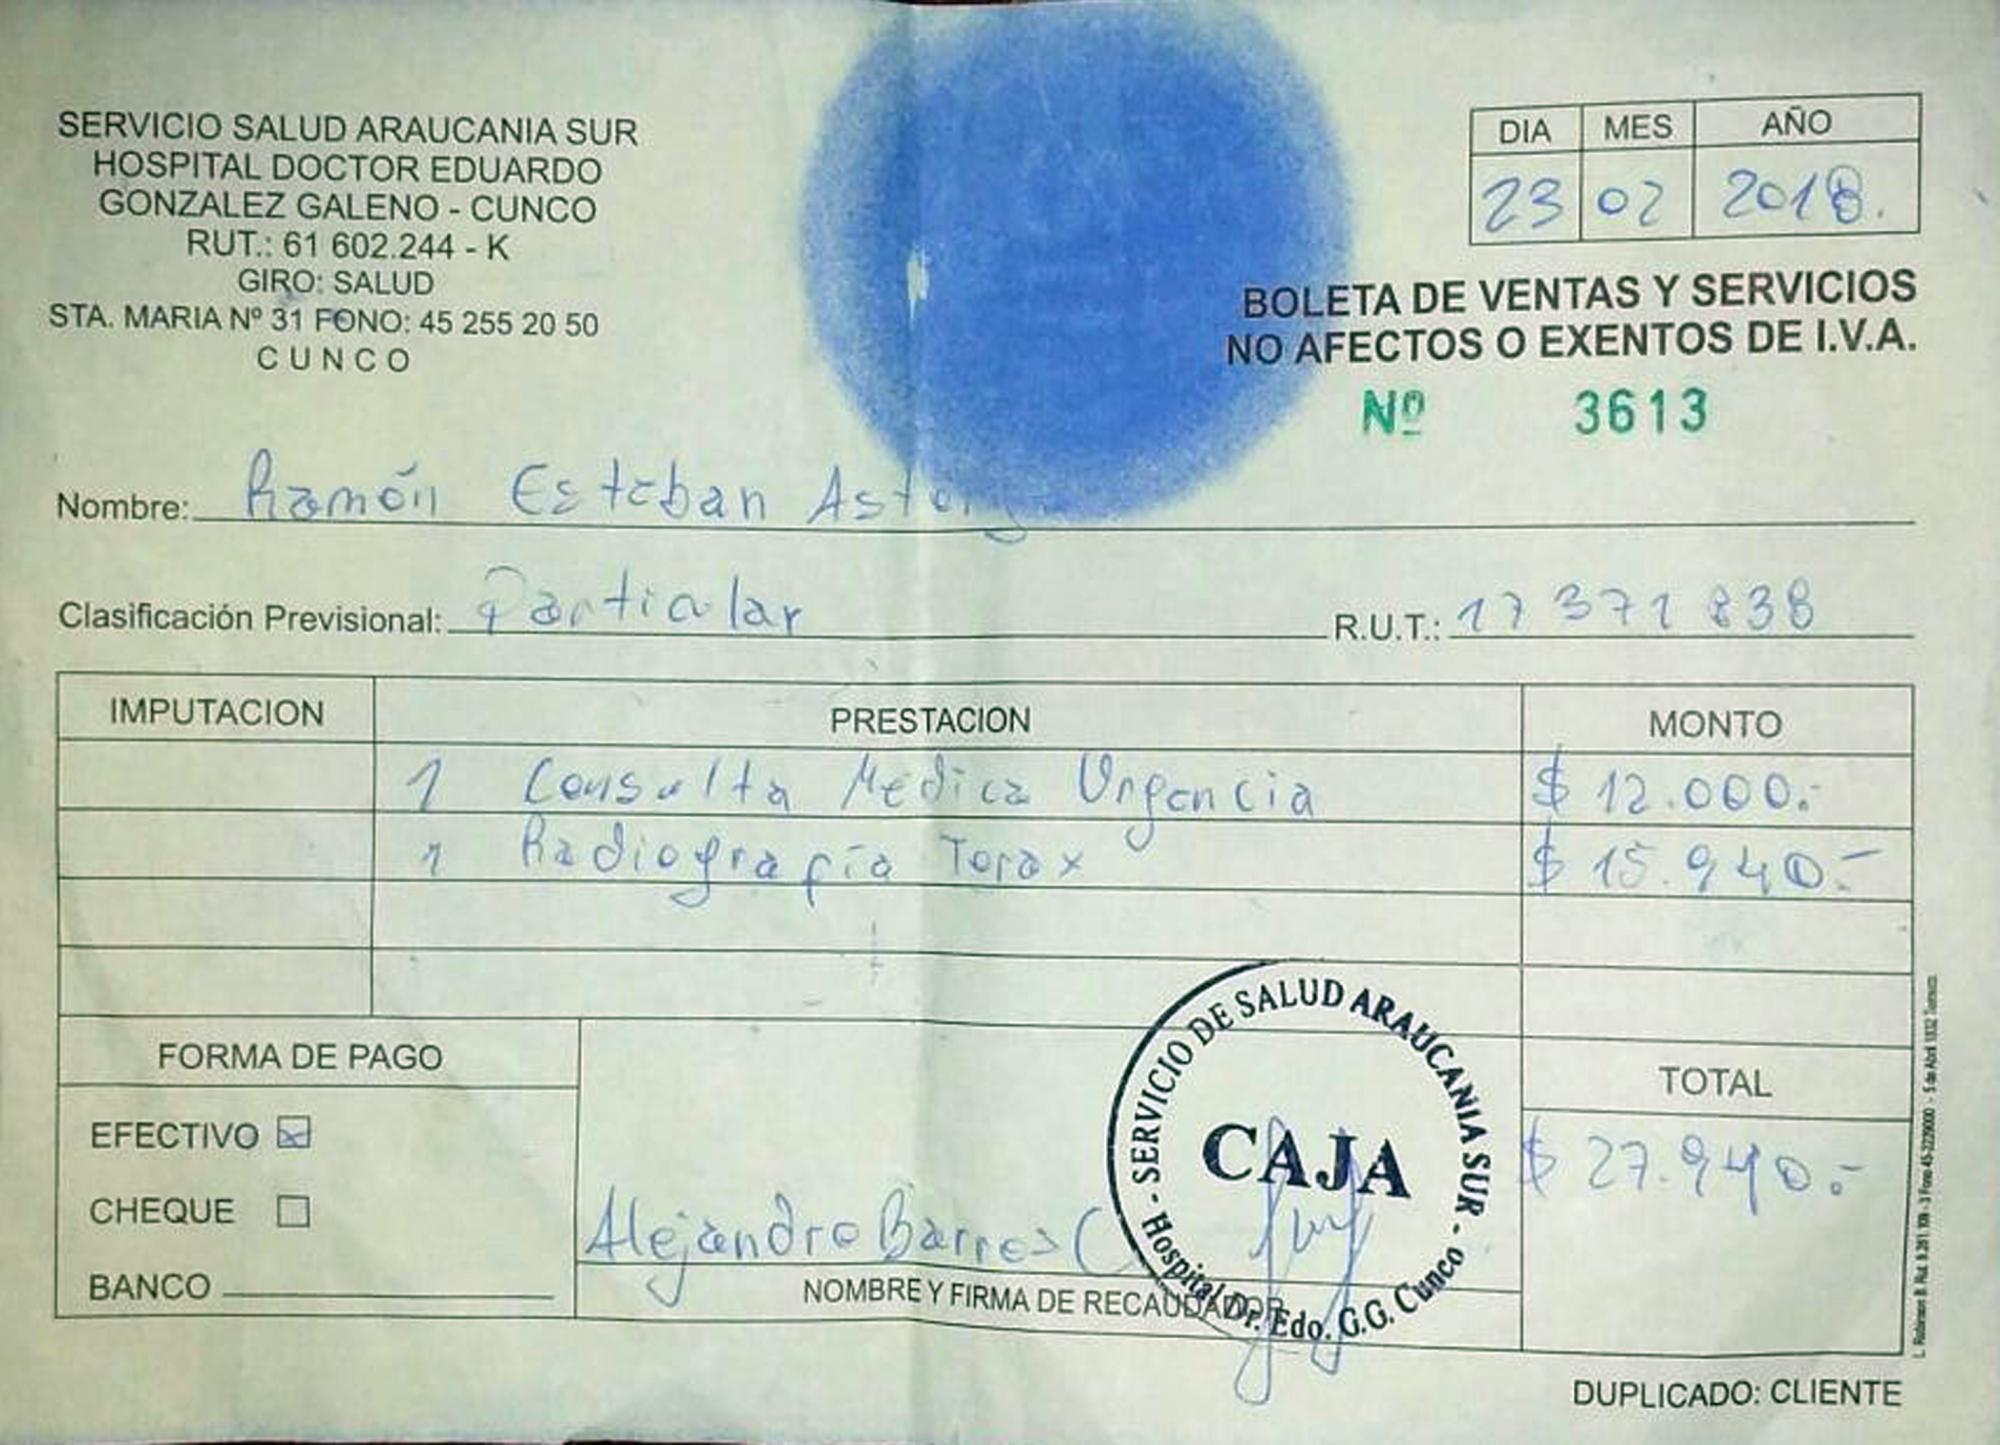 SERVICIO SALUD ARAUCANIA SUR
HOSPITAL DOCTOR EDUARDO
GONZALEZ GALENO - CUNCO
RUT.: 61 602.244 - K
GIRO: SALUD
STA. MARIA Nº 31 FONO: 45 255 20 50
CUNCO
DIA MES AÑO
23 02 2018.
BOLETA DE VENTAS Y SERVICIOS
NO AFECTOS O EXENTOS DE I.V.A.
Nº 3613
Nombre: Ramón Esteban
Clasificación Previsional: Particular R.U.T.: 17 371 838
IMPUTACION PRESTACION MONTO
1 Consulta Médica Urgencia $ 12.000.-
1 Radiografía Torax $ 15.940.-
FORMA DE PAGO
EFECTIVO
CHEQUE
BANCO
TOTAL
$ 27.940.-
Alejandro Barros C
NOMBRE Y FIRMA DE RECAUDADOR
- SERVICIO DE SALUD ARAUCANIA SUR -
CAJA
Hospital Dr. Edo. G.G. Cunco
DUPLICADO: CLIENTE